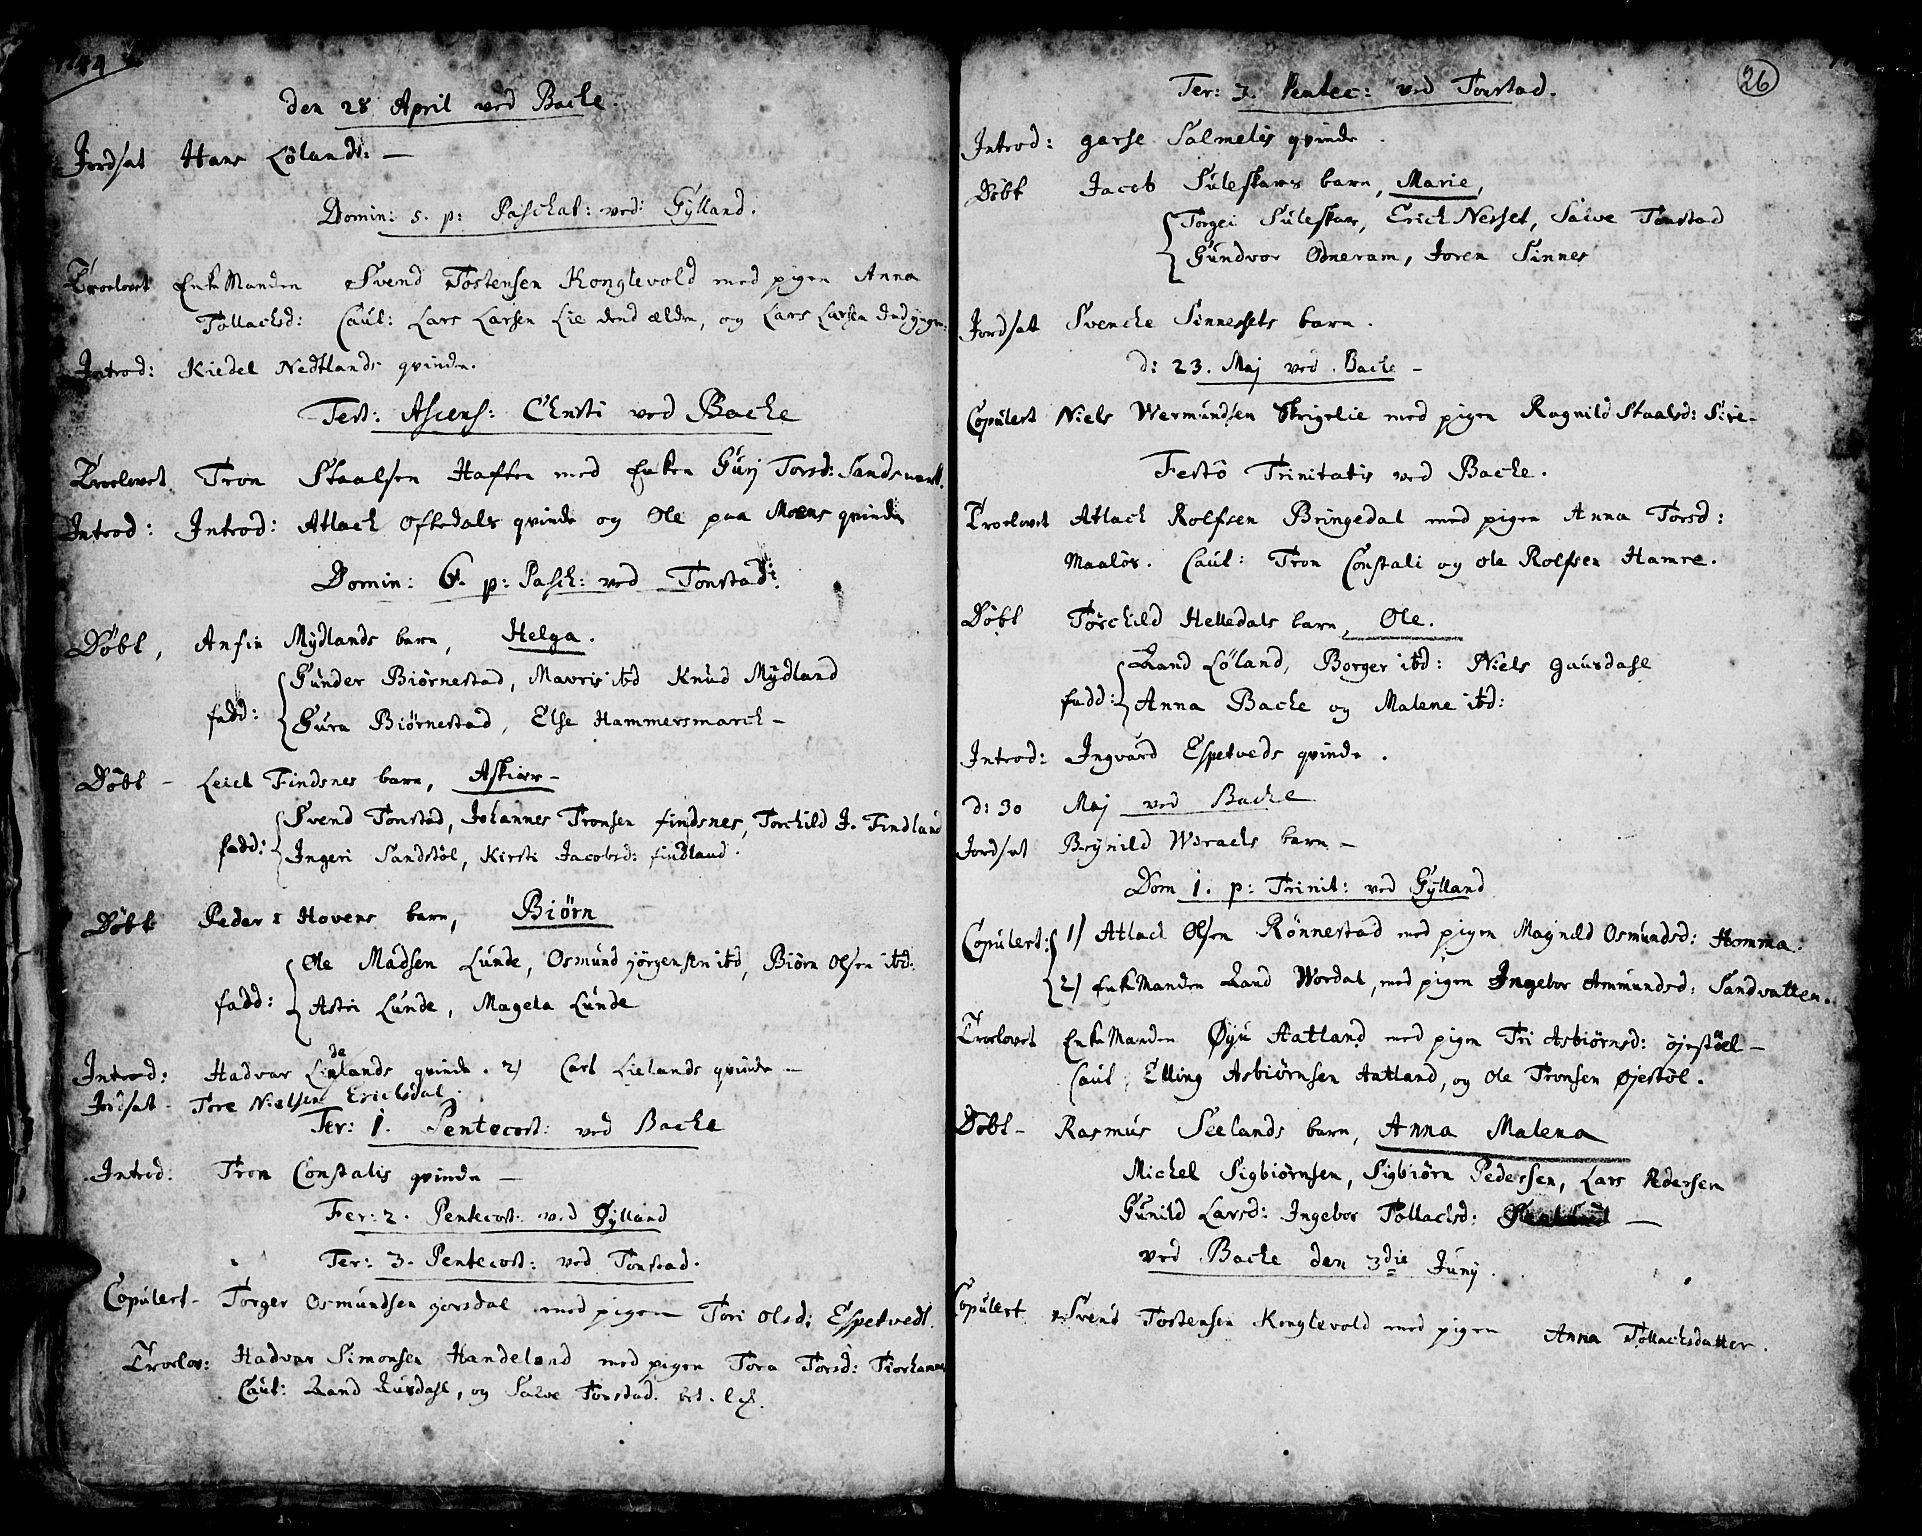 1744
den 28 April ved Bache.
Jordsat Hans Lölands: —
Domin: 5. p: Paschat: ved: Gÿlland.
Troelovet EnkeManden Svend Tostensen Konglevold med pigen Anna
Tollachsd: Caut: Lars Larsen Lie dend ælden, og Lars Larsen
Introd: Kiedel Nedtlands qvinde.
Fest: Ascens: Christi ved Bache
Troelovet Tron Staalsen Haften med Enken Gurj Torsd: Sandsmark.
Introd: Introd: Atlach Oftedals qvinde og Ole paa Moens qvinde
Domin: 6. p: Pasch: ved Tonstad:
Döbt, Anfin Mÿdlands barn, Helga.
Gunder Biørnestad, Mavris ibd Knud Mÿdland
fadd: Gura Biørnestad, Else Hammersmarck —
Döbt — Leid Findsnes barn, Askier —
Svend Tonstad, Johannes Tronsen findsnes, Torchild J. Findland
fadd: Ingeri Sandstöl, Kirsti Jacobsd: findland.
Döbt Peder Hovens barn, Biörn
Ole Madsen Lunde, Osmund jörgensen ibd, Biörn Olsen ibd:
fadd: Astri Lunde, Mageta Lunde
Introd: Hadvar Lindelands qvinde. 2) Carl Lielands qvinde —
Jordsat — Tore Nielsen Ericksdal.
Fer: 1. Pentecost: ved Bache
Introd: Tron Constalis qvinde —
Fer: 2. Pentecost: ved Gÿlland
Fer: 3. Pentecost: ved Tonstad.
Copulert — Torger Osmundsen gorsdal med pigen Tori Olsd: Espetvedt.
Troelov: Hadvar Simonsen Handeland med pigen Tora Torsd: Tiorhamn
Caut: Aand Rusdahl, og Salve Tonstad.
26
Fer: 3. Pentec: ved Tonstad.
Introd: garse Salmelis qvinde.
Döbt Jacob Suleskars barn, Marie,
Torgei Suleskar, Erich Nesset, Salve Tonstad
Gundvor Ousneram, Joren Sinnes
Jordsat Svencke Sinnessets barn.
d: 23. Maj ved Bache —
Copulert Niels Wermundsen Skrigelie med pigen Ragnild Staalsd: Sire —
Festo Trinitatis ved Bache.
Troelovet Atlach Rolfsen Bringedal med pigen Anna Torsd:
Maalös. Caut: Tron Constali og Ole Rolfsen Hamre.
Döbt Törchild Helledals barn, Ole.
Aand Löland, Borger ibd: Niels gausdahl
fadd: Anna Bache og Malene ibd:
Introd: Ingvard Espetveds qvinde.
d: 30 Maj ved Bache
Jordsat Brÿnild Woraels barn —
Dom 1. p: Trinit: ved Gÿlland
Copulert: 1) Atlach Olsen Rönnestad med pigen Magnild Osmundsd: Homma:
2) EnkeManden Aand Wordal, med pigen Ingebor Ammundsd: Sandvatten.
Troelovet EnkeManden Øÿu Aatland med pigen Tri Asbiörnsd: öjestöel —
Caut: Elling Asbiörnsen Aatland, og Ole Tronsen Øjestöl.
Döbt — Rasmus Seelands barn, Anna Malena
Michel Sigbiörnsen, Sigbiörn Pedersen, Lars Pedersen
Gunild Larsd: Ingebor Tollachsd: —
ved Bache den 3die Junÿ.
Copulert Svend Tostensen Konglevold med pigen Anna Tollachsdatter.